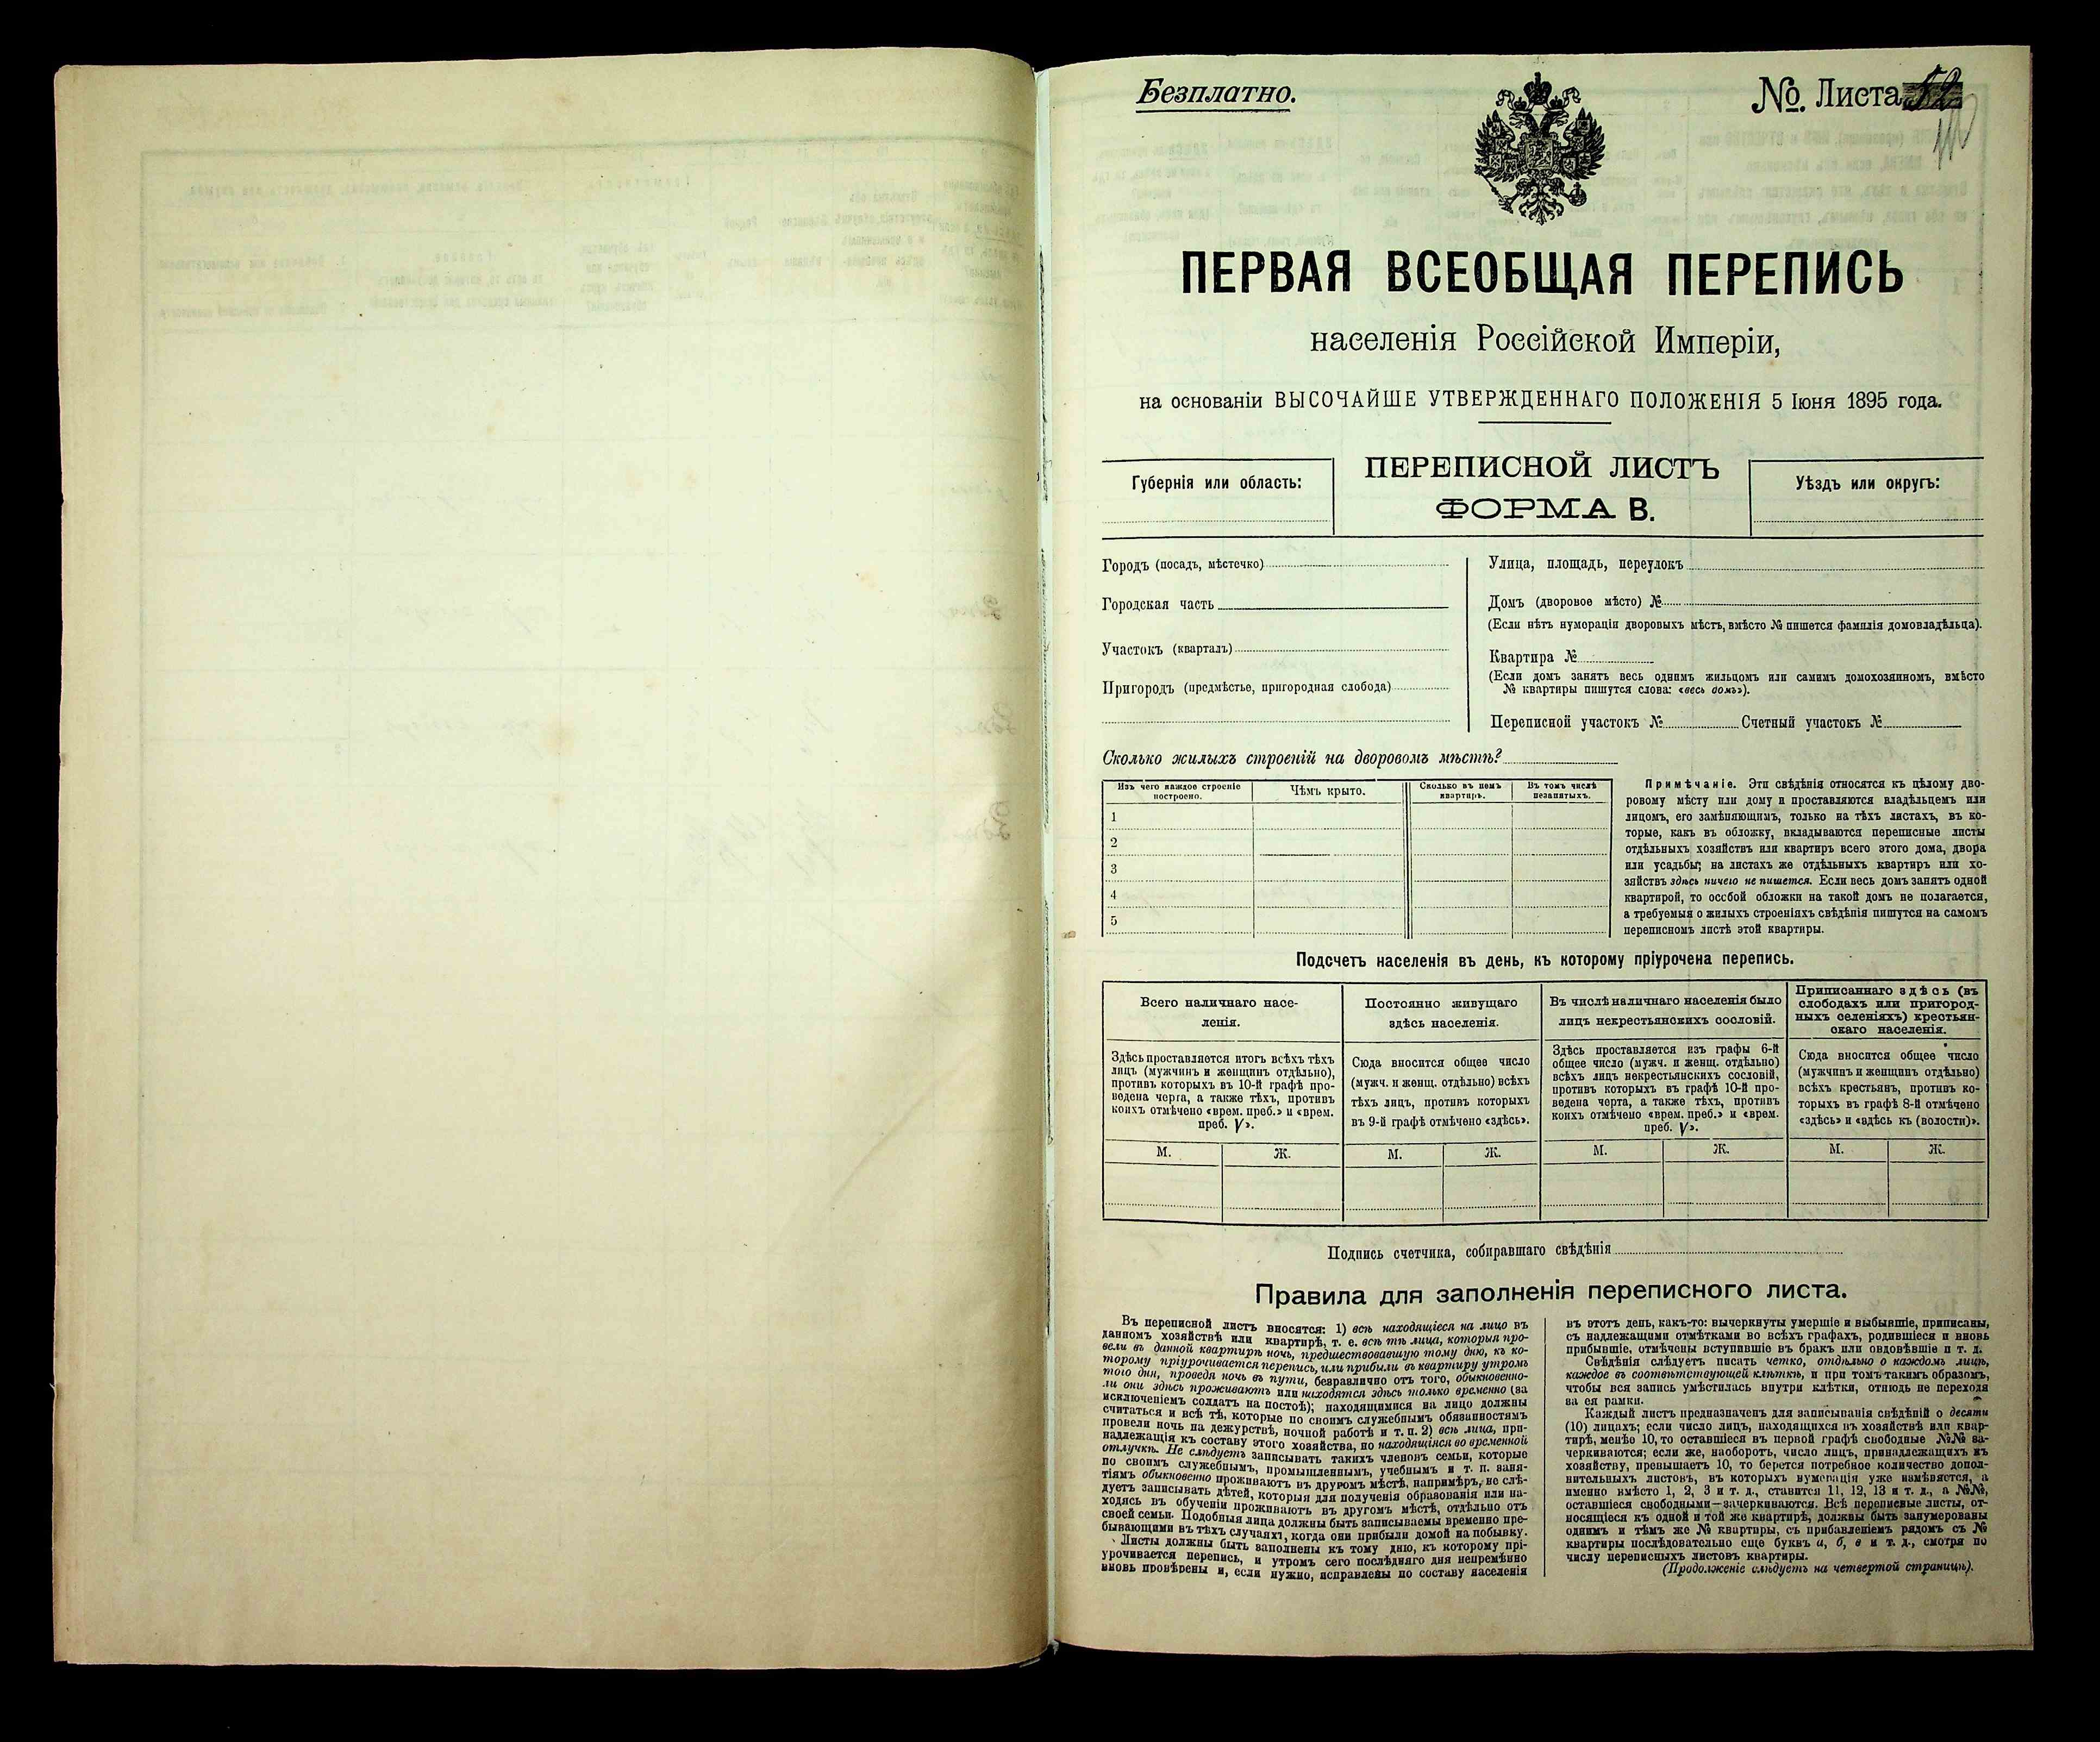 Безплатно.
№. Листа
ПЕРВАЯ ВСЕОБЩАЯ ПЕРЕПИСЬ
населенія Россійской Имперіи,
на основаніи ВЫСОЧАЙШЕ УТВЕРЖДЕННАГО ПОЛОЖЕНІЯ 5 Іюня 1895 года.
Губернія или область:
ПЕРЕПИСНОЙ ЛИСТЪ
ФОРМА В.
Уѣздъ или округъ:
Городъ (посадъ, мѣстечко)
Городская часть
Участокъ (кварталъ)
Пригородъ (предмѣстье, пригородная слобода)
Улица, площадь, переулокъ
Домъ (дворовое мѣсто) №
(Если нѣтъ нумораціи дворовыхъ мѣстъ, вмѣсто № пишется фамилія домовладѣльца).
Квартира №
(Если домъ занятъ весь однимъ жильцомъ или самимъ домохозяиномъ, вмѣсто
№ квартиры пишутся слова: «весь домъ»).
Переписной участокъ № Счетный участокъ №
Сколько жилыхъ строеній на дворовомъ мѣстѣ?
Изъ чего каждое строеніе
построено.
Чѣмъ крыто.
Сколько въ немъ
квартиръ.
Въ томъ числѣ
незанятыхъ.
1
2
3
4
5
Примѣчаніе. Эти свѣдѣнія относятся къ цѣлому дво-
ровому мѣсту или дому и проставляются владѣльцемъ или
лицомъ, его замѣняющимъ, только на тѣхъ листахъ, въ ко-
торые, какъ въ обложку, вкладываются переписные листы
отдѣльныхъ хозяйствъ или квартиръ всего этого дома, двора
или усадьбы; на листахъ же отдѣльныхъ квартиръ или хо-
зяйствъ здѣсь ничего не пишется. Если весь домъ занятъ одной
квартирой, то особой обложки на такой домъ не полагается,
а требуемыя о жилыхъ строеніяхъ свѣдѣнія пишутся на самомъ
переписномъ листѣ этой квартиры.
Подсчетъ населенія въ день, къ которому пріурочена перепись.
Всего наличнаго насе-
ленія.
Здѣсь проставляется итогъ всѣхъ тѣхъ
лицъ (мужчинъ и женщинъ отдѣльно),
противъ которыхъ въ 10-й графѣ про-
ведена черта, а также тѣхъ, противъ
коихъ отмѣчено «врем. преб.» и «врем.
преб. V».
Постоянно живущаго
здѣсь населенія.
Сюда вносится общее число
(мужч. и женщ. отдѣльно) всѣхъ
тѣхъ лицъ, противъ которыхъ
въ 9-й графѣ отмѣчено «здѣсь».
Въ числѣ наличнаго населенія было
лицъ некрестьянскихъ сословій.
Здѣсь проставляется изъ графы 6-й
общее число (мужч. и женщ. отдѣльно)
всѣхъ лицъ некрестьянскихъ сословій,
противъ которыхъ въ графѣ 10-й про-
ведена черта, а также тѣхъ, противъ
коихъ отмѣчено «врем. преб.» и «врем.
преб. V».
Приписаннаго здѣсь (въ
слободахъ или пригород-
ныхъ селеніяхъ) крестьян-
скаго населенія.
Сюда вносится общее число
(мужчинъ и женщинъ отдѣльно)
всѣхъ крестьянъ, противъ ко-
торыхъ въ графѣ 8-й отмѣчено
«здѣсь» и «здѣсь къ (волости)».
М. Ж. М. Ж. М. Ж. М. Ж.
Подпись счетчика, собиравшаго свѣдѣнія
Правила для заполненія переписного листа.
Въ переписной листъ вносятся: 1) всѣ находящіеся на лицо въ
данномъ хозяйствѣ или квартирѣ, т. е. всѣ тѣ лица, которыя про-
вели въ данной квартирѣ ночь, предшествовавшую тому дню, къ ко-
торому пріурочивается перепись, или прибыли въ квартиру утромъ
того дня, проведя ночь въ пути, безразлично отъ того, обыкновенно-
ли они здѣсь проживаютъ или находятся здѣсь только временно (за
исключеніемъ солдатъ на постоѣ); находящимися на лицо должны
считаться и всѣ тѣ, которые по своимъ служебнымъ обязанностямъ
провели ночь на дежурствѣ, ночной работѣ и т. п. 2) всѣ лица, при-
надлежащія къ составу этого хозяйства, но находящіяся во временной
отлучкѣ. Не слѣдуетъ записывать такихъ членовъ семьи, которые
по своимъ служебнымъ, промышленнымъ, учебнымъ и т. п. заня-
тіямъ обыкновенно проживаютъ въ другомъ мѣстѣ, напримѣръ, не слѣ-
дуетъ записывать дѣтей, которыя для полученія образованія или на-
ходясь въ обученіи проживаютъ въ другомъ мѣстѣ, отдѣльно отъ
своей семьи. Подобныя лица должны быть записываемы временно пре-
бывающими въ тѣхъ случаяхъ, когда они прибыли домой на побывку.
Листы должны быть заполнены къ тому дню, къ которому прі-
урочивается перепись, и утромъ сего послѣдняго дня непремѣнно
вновь провѣрены и, если нужно, исправлены по составу населенія
въ этотъ день, какъ-то: вычеркнуты умершіе и выбывшіе, приписаны,
съ надлежащими отмѣтками во всѣхъ графахъ, родившіеся и вновь
прибывшіе, отмѣчены вступившіе въ бракъ или овдовѣвшіе и т. д.
Свѣдѣнія слѣдуетъ писать четко, отдѣльно о каждомъ лицѣ,
каждое въ соотвѣтствующей клѣткѣ, и при томъ такимъ образомъ,
чтобы вся запись умѣстилась внутри клѣтки, отнюдь не переходя
за ея рамки.
Каждый листъ предназначенъ для записыванія свѣдѣній о десяти
(10) лицахъ; если число лицъ, находящихся въ хозяйствѣ или квар-
тирѣ, менѣе 10, то оставшіеся въ первой графѣ свободные №№ за-
черкиваются; если же, наоборотъ, число лицъ, принадлежащихъ къ
хозяйству, превышаетъ 10, то берется потребное количество допол-
нительныхъ листовъ, въ которыхъ нумерація уже измѣняется, а
именно вмѣсто 1, 2, 3 и т. д., ставится 11, 12, 13 и т. д., а №№,
оставшіеся свободными—зачеркиваются. Всѣ переписные листы, от-
носящіеся къ одной и той же квартирѣ, должны быть занумерованы
однимъ и тѣмъ же № квартиры, съ прибавленіемъ рядомъ съ №
квартиры послѣдовательно еще буквъ а, б, в и т. д., смотря по
числу переписныхъ листовъ квартиры.
(Продолженіе слѣдуетъ на четвертой страницѣ).